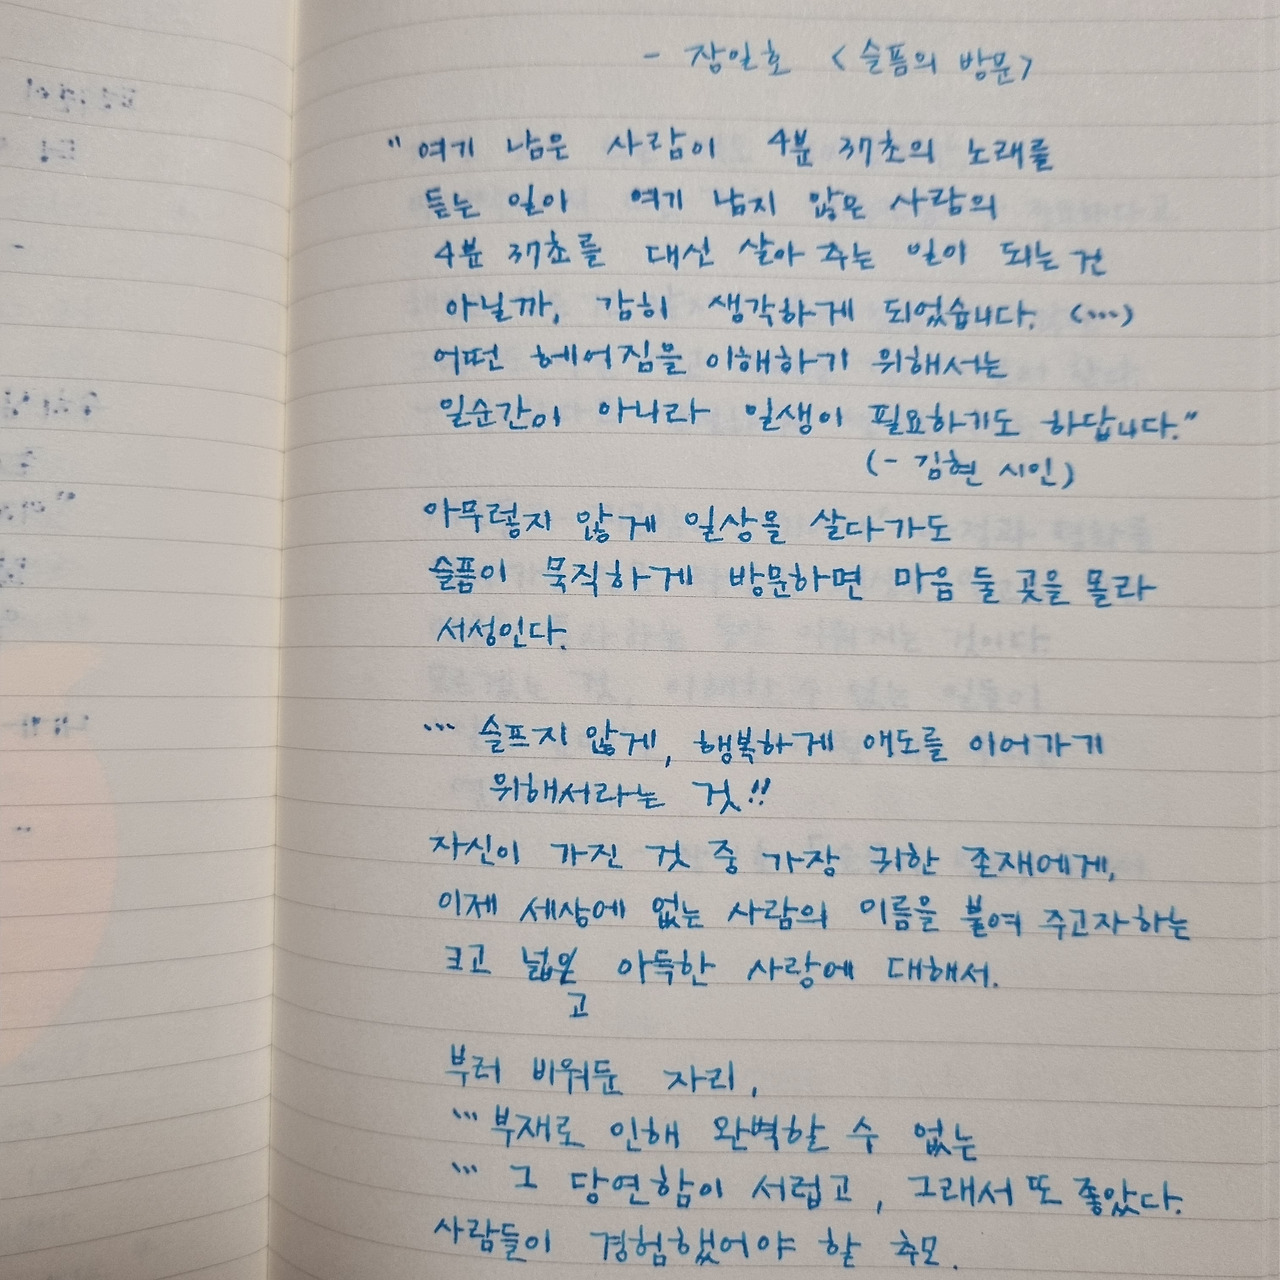 - 장일호 <슬픔의 방문>
"여기 남은 사람이 4분 37초의 노래를
듣는 일이 여기 남지 않은 사람의
4분 37초를 대신 살아 주는 일이 되는 건
아닐까, 감히 생각하게 되었습니다. (...)
어떤 헤어짐을 이해하기 위해서는
일순간이 아니라 일생이 필요하기도 하답니다."
(- 김현 시인)
아무렇지 않게 일상을 살다가도
슬픔이 묵직하게 방문하면 마음 둘 곳을 몰라
서성인다.
... 슬프지 않게, 행복하게 애도를 이어가기
위해서라는 것!!
자신이 가진 것 중 가장 귀한 존재에게,
이제 세상에 없는 사람의 이름을 붙여 주고자 하는
크고 넓은 아득한 사랑에 대해서.
고
부러 비워둔 자리,
... 부재로 인해 완벽할 수 없는
... 그 당연함이 서럽고, 그래서 또 좋았다.
사람들이 경험했어야 할 추모.